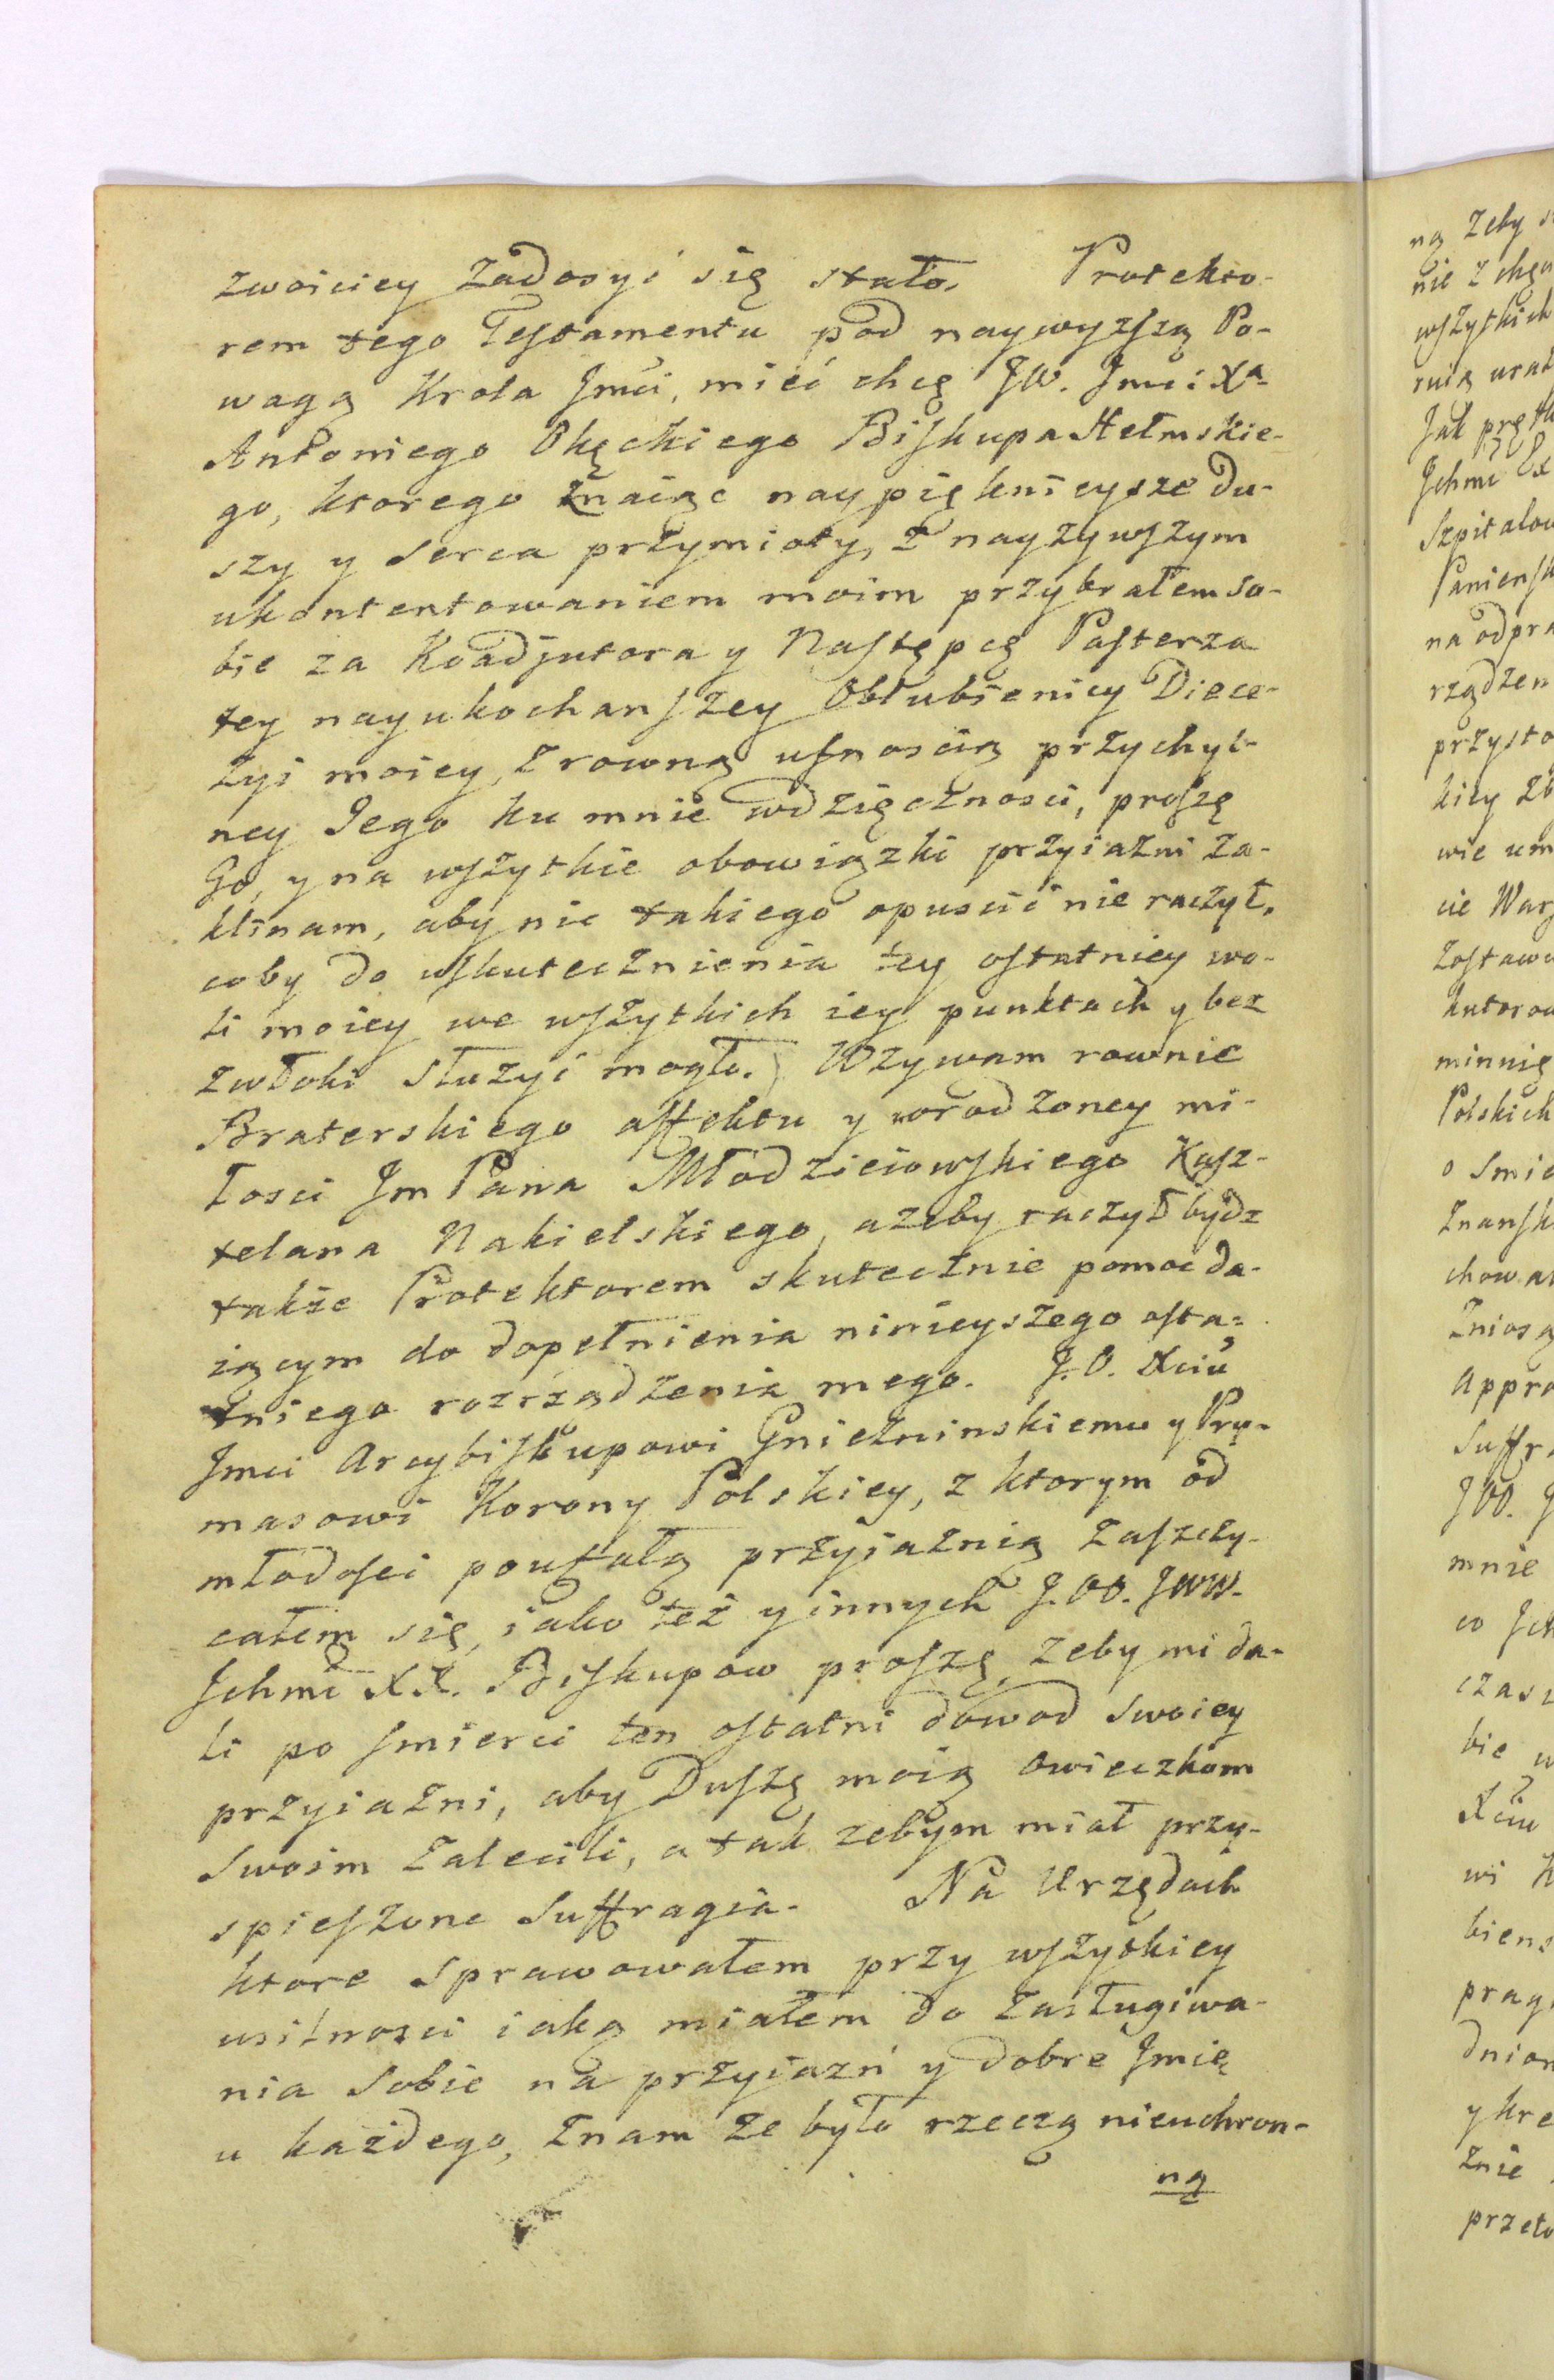 zwoiciey zadosyć się stało. Protekto-
rem tego Testamentu pod naywyzszą Po-
wagą Krola Jmci, mieć chcę JW. Jmci Xa
Antoniego Okęckiego Biskupa Hełmskie-
go, ktorego znaiąc naypięknieysze du-
szy y serca przymioty, z nayzywszym
ukontentowaniem moim przybrałem so-
bie za Koadjutora y Następcę Pasterza
tey nayukochanszey Oblubienicy Diece-
zyi moiey, z rowną ufnoscią przychyl-
ney Jego ku mnie wdzięcznosci, proszę
Go, y na wszytkie obowiązki przyiazni za-
klinam, aby nic takiego opuscić nie raczył,
coby do uskutecznienia tey ostatniey wo-
li moiey we wszytkich iey punktach y bez
zwłoki służyć mogło. Wzywam rownie
Braterskiego affektu y wrodzoney mi-
łosci Jm Pana Młodzieiowskiego Kasz-
telana Nakielskiego, azeby raczył bydz
także Protektorem skutecznie pomoc da-
iącym do dopełnienia ninieyszego osta=
tniego rozrządzenia mego. J.O. Xciu
Jmci Arcybiskupowi Gniezninskiemu y Pry-
masowi Korony Polskiey, z ktorym od
młodosci poufałą przyiaznią zaszczy-
całem się, iako też y innych J.OO. JWW.
Ichmć XX. Biskupow proszę, zeby mi da-
li po smierci ten ostatni dowod swoiey
przyiazni, aby Duszę moią owieczkom
swoim zalecili, a tak zebym miał przy-
spieszone suffragia. Na Urzędach
ktore sprawowałem przy wszytkiey
usilnosci iaką miałem do zasługiwa-
nia sobie na przyiazń y dobre Jmię
u każdego, znam ze było rzeczą nieuchron-
ną
ną zeby
wszytkich
Szpitalow
na odpra
Polskich
mnie